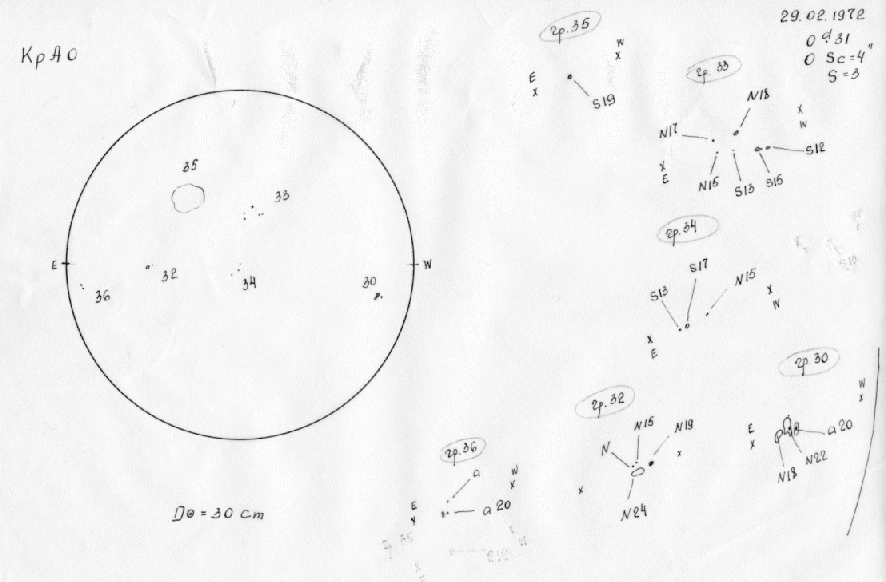 КрАО
29.02.1972
Sc=4"
S=3
35
33
E
W
32
34
30
36
D⊙ = 30 cm
гр.35
W
x
E
x
S19
гр.33
N18
N17
x
W
x
E
N15
S13
S15
S12
гр.34
S17
S13
N15
x
W
x
E
гр.32
N15
N19
N
x
x
N24
гр.30
W
x
E
x
a20
N22
N18
гр.36
a
W
x
E
x
a20